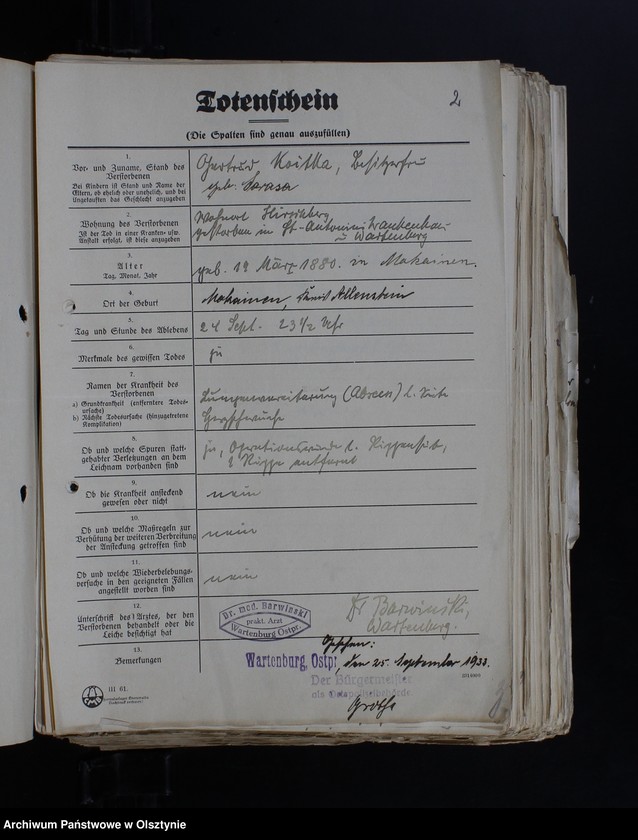 Totenschein
2
(Die Spalten sind genau auszufüllen)
1.
Vor- und Zuname, Stand des
Verstorbenen
Bei Kindern ist Stand und Name der
Eltern, ob ehelich oder unehelich, und bei
Ungetauften das Geschlecht anzugeben
Gertrud Koitka, Besitzerfrau
geb. Sarasa
2.
Wohnung des Verstorbenen
Ist der Tod in einer Kranken- usw.
Anstalt erfolgt, ist diese anzugeben
Wohnort Hirschberg
gestorben im St-Antonius Krankenhaus
Wartenberg
3.
Alter
Tag, Monat, Jahr
geb. 19 März 1880. in Mokainen.
4.
Ort der Geburt
Mokainen, Kreis Allenstein
5.
Tag und Stunde des Ablebens
24 Sept. 23 1/2 Uhr
6.
Merkmale des gewissen Todes
ja
7.
Namen der Krankheit des
Verstorbenen
a) Grundkrankheit (entferntere Todes-
ursache)
b) Nächste Todesursache (hinzugetretene
Komplikation)
Lungenvereiterung l. Seite
Herzschwäche
8.
Ob und welche Spuren statt-
gehabter Verletzungen an dem
Leichnam vorhanden sind
ja, Operationswunde l.
Rippe entfernt
9.
Ob die Krankheit ansteckend
gewesen oder nicht
nein
10.
Ob und welche Maßregeln zur
Verhütung der weiteren Verbreitung
der Ansteckung getroffen sind
nein
11.
Ob und welche Wiederbelebungs-
versuche in den geeigneten Fällen
angestellt worden sind
nein
12.
Unterschrift des Arztes, der den
Verstorbenen behandelt oder die
Leiche besichtigt hat
Dr. med. Barwinski
prakt. Arzt
Wartenburg Ostpr.
Dr Barwinski,
Wartenberg.
13.
Bemerkungen
Gesehen:
Wartenburg, Ostpr., den 25. September 1933.
Der Bürgermeister
als Ortspolizeibehörde.
Grothe
III 61.
Archiwum Państwowe w Olsztynie